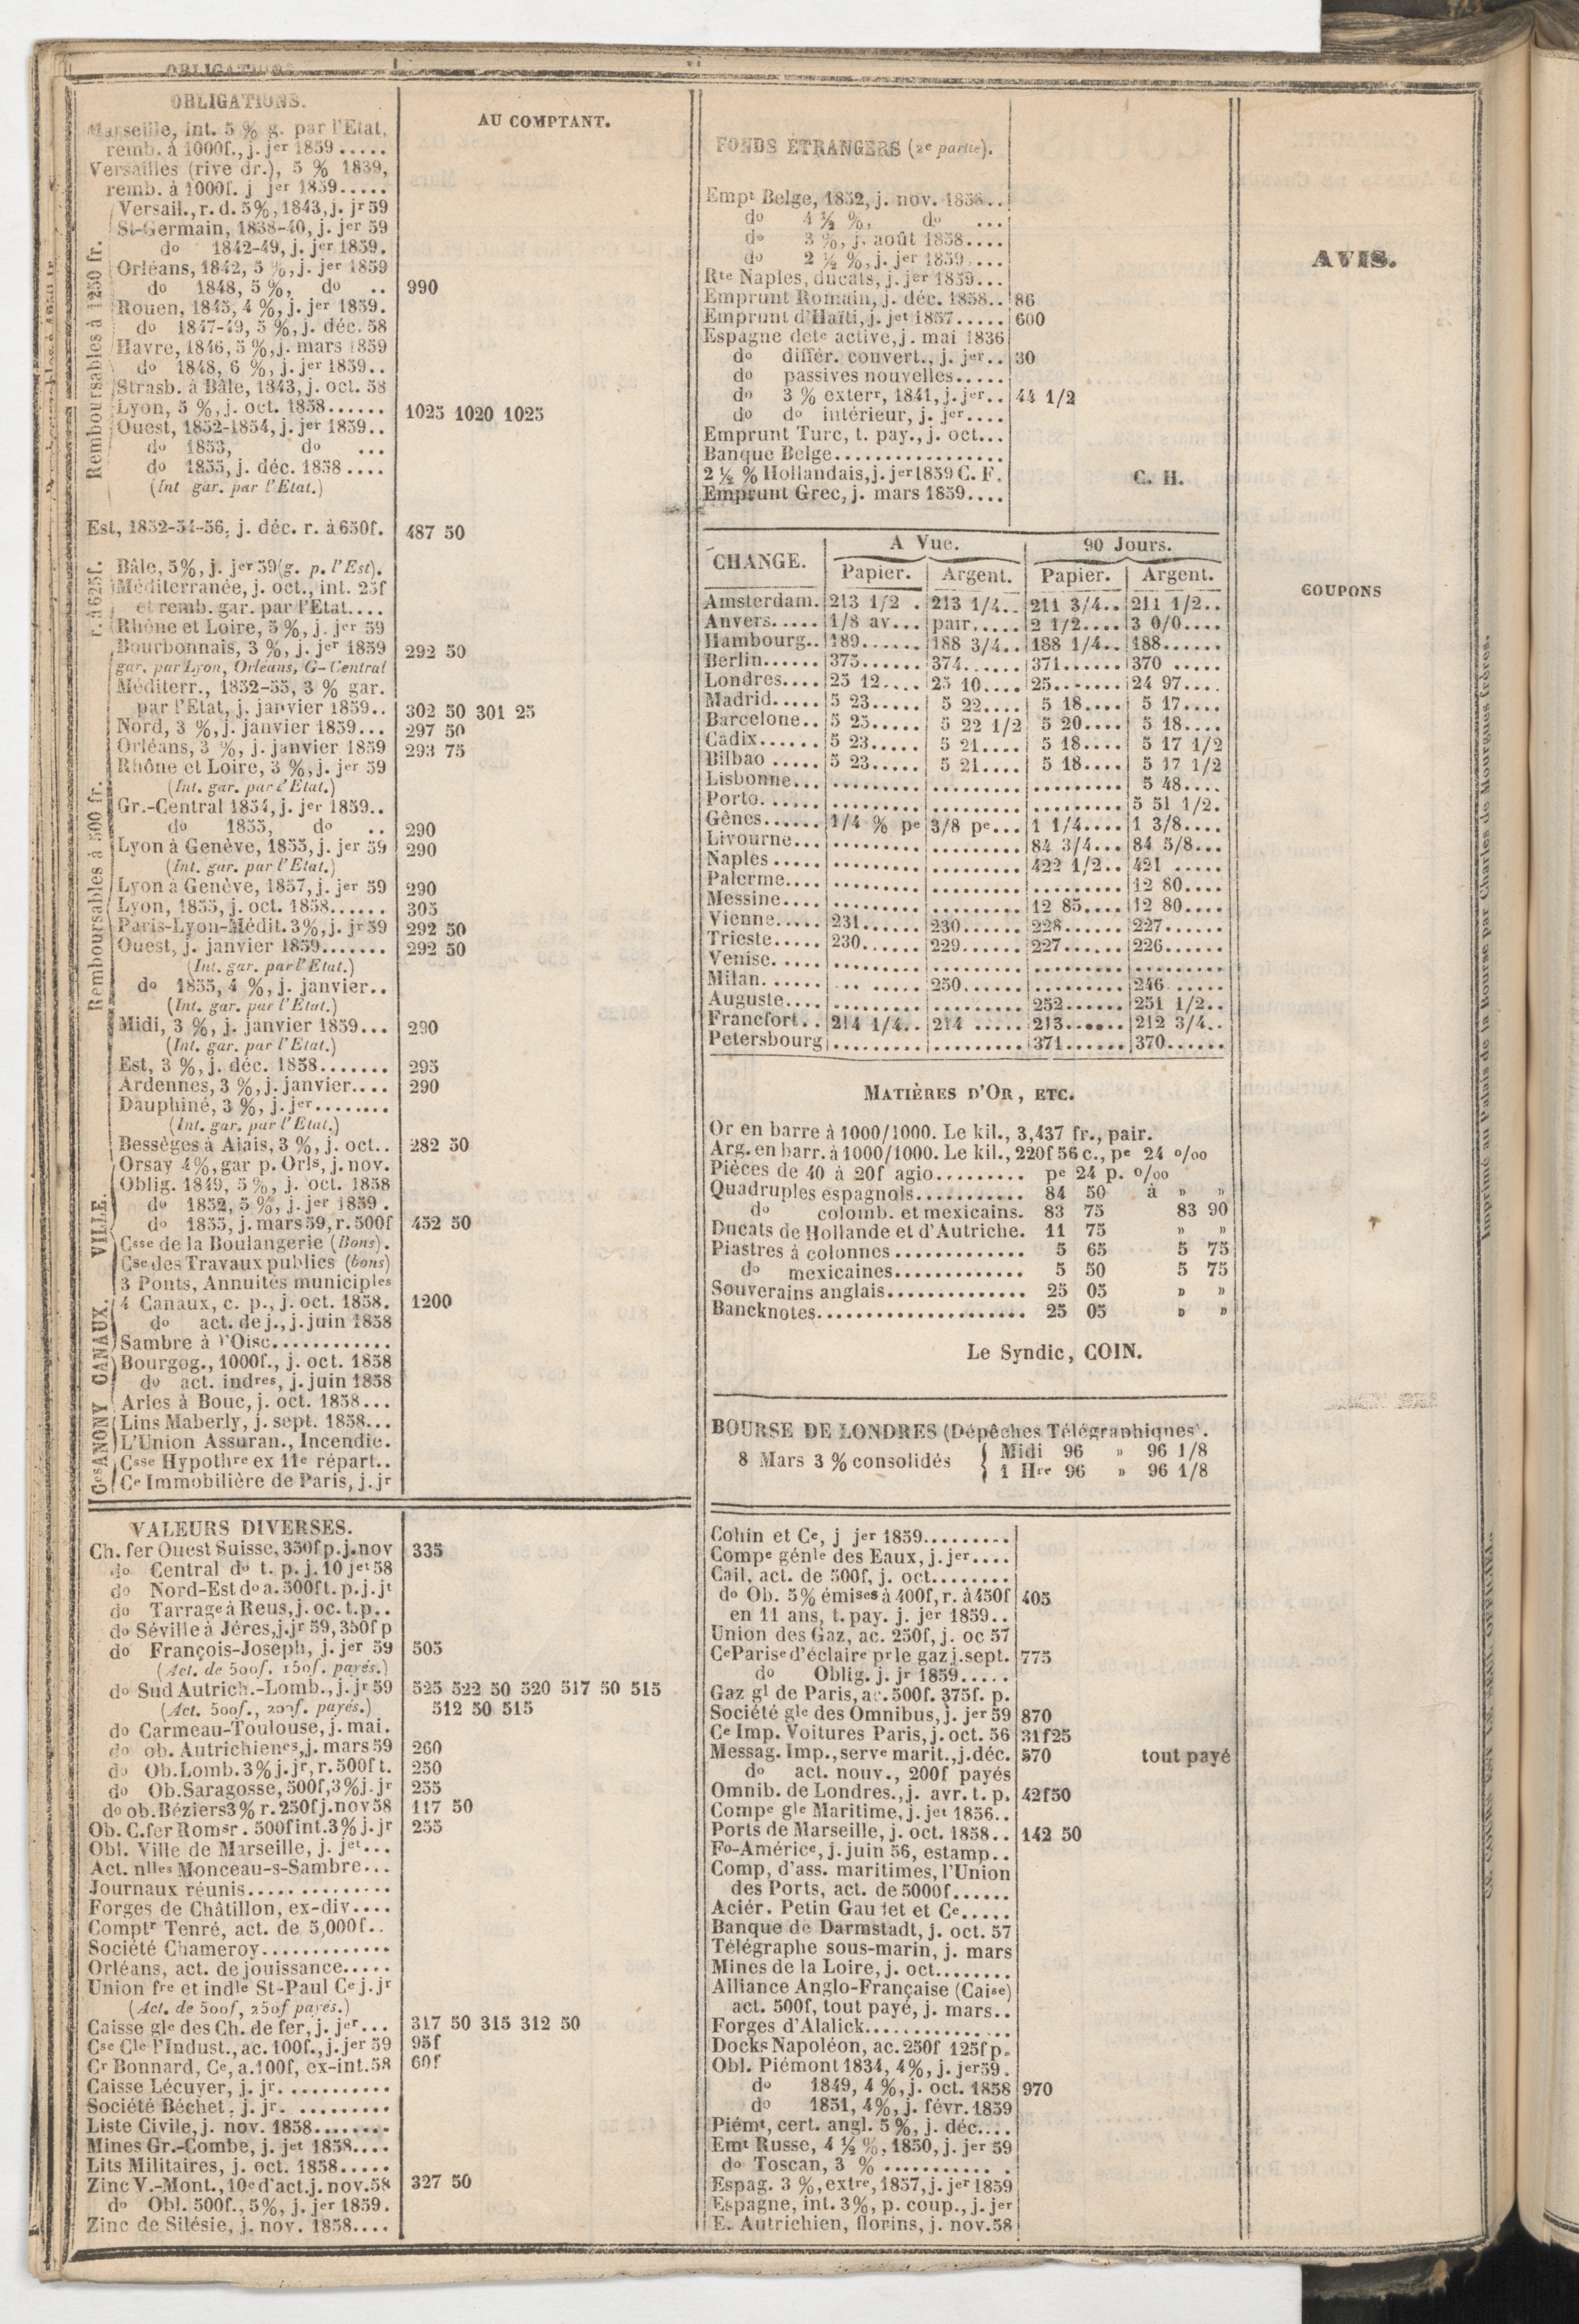 OBLIGATIONS.
AU COMPTANT.
Marseille, int. 5 % g. par l'Etat,
remb. à 1000f., j. jer 1859.....
Versailles (rive dr.), 5 % 1839,
remb. à 1000f. j jer 1859.....
Remboursables à 1250 fr.
Versail., r. d. 5%, 1843, j. jr 59
St-Germain, 1838-40, j. jer 59
do 1842-49, j. jer 1859.
Orléans, 1842, 5 %, j. jer 1859
do 1848, 5 %, do .. 990
Rouen, 1845, 4 %, j. jer 1859.
do 1847-49, 5 %, j. déc. 58
Havre, 1846, 5 %, j. mars 1859
do 1848, 6 %, j. jer 1859..
Strasb. à Bâle, 1843, j. oct. 58
Lyon, 5 %, j. oct. 1858...... 1025 1020 1025
Ouest, 1852-1854, j. jer 1859..
do 1853, do ...
do 1855, j. déc. 1858....
(Int gar. par l'Etat.)
Est, 1852-54-56, j. déc. r. à 650f. 487 50
r. à 625f.
Bâle, 5%, j. jer 59 (g. p. l'Est).
Méditerranée, j. oct., int. 25f
et remb. gar. par l'Etat....
Rhône et Loire, 5 %, j. jer 59
Remboursables à 500 fr.
Bourbonnais, 3 %, j. jer 1859 292 50
gar. par Lyon, Orléans, G-Central
Méditerr., 1852-55, 3 % gar.
par l'Etat, j. janvier 1859.. 302 50 301 25
Nord, 3 %, j. janvier 1859... 297 50
Orléans, 3 %, j. janvier 1859 293 75
Rhône et Loire, 3 %, j. jer 59
(Int. gar. par l'Etat.)
Gr.-Central 1854, j. jer 1859..
do 1855, do .. 290
Lyon à Genève, 1855, j. jer 59 290
(Int. gar. par l'Etat.)
Lyon à Genève, 1857, j. jer 59 290
Lyon, 1855, j. oct. 1858...... 305
Paris-Lyon-Médit. 3%, j. jr 59 292 50
Ouest, j. janvier 1859....... 292 50
(Int. gar. par l'Etat.)
do 1855, 4 %, j. janvier..
(Int. gar. par l'Etat.)
Midi, 3 %, j. janvier 1859... 290
(Int. gar. par l'Etat.)
Est, 3 %, j. déc. 1858....... 295
Ardennes, 3 %, j. janvier.... 290
Dauphiné, 3 %, j. jer........
(Int. gar. par l'Etat.)
Bessèges à Alais, 3 %, j. oct.. 282 50
Orsay 4%, gar p. Orls, j. nov.
VILLE.
Oblig. 1849, 5 %, j. oct. 1858
do 1852, 5 %, j. jer 1859.
do 1855, j. mars 59, r. 500f 452 50
Csse de la Boulangerie (Bons).
Cse des Travaux publics (bons)
3 Ponts, Annuités municiples
CANAUX.
4 Canaux, c. p., j. oct. 1858. 1200
do act. de j., j. juin 1858
Sambre à l'Oise............
Bourgog., 1000f., j. oct. 1858
do act. indres, j. juin 1858
Arles à Bouc, j. oct. 1858...
Ces ANONY
Lins Maberly, j. sept. 1858...
L'Union Assuran., Incendie.
Csse Hypothre ex 11e répart..
Ce Immobilière de Paris, j. jr
VALEURS DIVERSES.
Ch. fer Ouest Suisse, 350f p. j. nov 335
do Central do t. p. j. 10 jet 58
do Nord-Est do a. 500f t. p. j. jt
do Tarrage à Reus, j. oc. t. p..
do Séville à Jéres, j. jr 59, 350f p
do François-Joseph, j. jer 59 505
(Act. de 500f. 150f. payés.)
do Sud Autrich.-Lomb., j. jr 59 525 522 50 520 517 50 515
(Act. 500f., 200f. payés.) 512 50 515
do Carmeau-Toulouse, j. mai.
do ob. Autrichienes, j. mars 59 260
do Ob. Lomb. 3% j. jr, r. 500f t. 250
do Ob. Saragosse, 500f, 3% j. jr 255
do ob. Béziers 3% r. 250f j. nov 58 117 50
Ob. C. fer Romsr. 500f int. 3% j. jr 255
Obl. Ville de Marseille, j. jet...
Act. nlles Monceau-s-Sambre...
Journaux réunis..............
Forges de Châtillon, ex-div....
Comptr Tenré, act. de 5,000f..
Société Chameroy.............
Orléans, act. de jouissance.....
Union fre et indle St-Paul Ce j. jr
(Act. de 500f, 250f payés.)
Caisse gle des Ch. de fer, j. jer... 317 50 315 312 50
Cse Cle l'Indust., ac. 100f., j. jer 59 95f
Cr Bonnard, Ce, a. 100f, ex-int. 58 60f
Caisse Lécuyer, j. jr...........
Société Béchet, j. jr..........
Liste Civile, j. nov. 1858........
Mines Gr.-Combe, j. jet 1858....
Lits Militaires, j. oct. 1858.....
Zinc V.-Mont., 10e d'act. j. nov. 58 327 50
do Obl. 500f., 5%, j. jer 1859.
Zinc de Silésie, j. nov. 1858....
FONDS ÉTRANGERS (2e partie).
Empt Belge, 1852, j. nov. 1858..
do 4 ½ %, do ...
do 3 %, j. août 1858....
do 2 ½ %, j. jer 1859....
Rte Naples, ducats, j. jer 1859...
Emprunt Romain, j. déc. 1858.. 86
Emprunt d'Haïti, j. jet 1857..... 600
Espagne dete active, j. mai 1836
do différ. convert., j. jer.. 30
do passives nouvelles.....
do 3 % exterr, 1841, j. jer.. 44 1/2
do do intérieur, j. jer....
Emprunt Turc, t. pay., j. oct...
Banque Belge................
2 ½ % Hollandais, j. jer 1859 C. F. C. H.
Emprunt Grec, j. mars 1859....
CHANGE. A Vue. 90 Jours.
Papier. Argent. Papier. Argent.
Amsterdam. 213 1/2 . 213 1/4.. 211 3/4.. 211 1/2..
Anvers..... 1/8 av... pair..... 2 1/2.... 3 0/0....
Hambourg.. 189...... 188 3/4.. 188 1/4.. 188......
Berlin...... 375...... 374...... 371...... 370 .....
Londres.... 25 12.... 25 10.... 25....... 24 97....
Madrid..... 5 23..... 5 22.... 5 18.... 5 17....
Barcelone.. 5 25..... 5 22 1/2 5 20.... 5 18....
Cadix...... 5 23..... 5 21.... 5 18.... 5 17 1/2
Bilbao ..... 5 23..... 5 21.... 5 18.... 5 17 1/2
Lisbonne... ......... ......... ......... 5 48....
Porto...... ......... ......... ......... 5 51 1/2.
Gênes...... 1/4 % pe 3/8 pe... 1 1/4.... 1 3/8....
Livourne... ......... ......... 84 3/4... 84 5/8...
Naples..... ......... ......... 422 1/2.. 421 .....
Palerme.... ......... ......... ......... 12 80....
Messine.... ......... ......... 12 85.... 12 80....
Vienne..... 231...... 230...... 228...... 227......
Trieste..... 230...... 229...... 227...... 226......
Venise..... ......... ......... ......... .........
Milan...... ... ..... 250...... ......... 246 .....
Auguste.... ......... ......... 252...... 251 1/2..
Francfort.. 214 1/4.. 214 ..... 213...... 212 3/4..
Petersbourg ......... ......... 371...... 370......
MATIÈRES D'OR, ETC.
Or en barre à 1000/1000. Le kil., 3,437 fr., pair.
Arg. en barr. à 1000/1000. Le kil., 220f 56 c., pe 24 o/oo
Pièces de 40 à 20f agio......... pe 24 p. o/oo
Quadruples espagnols........... 84 50 à » »
do colomb. et mexicains. 83 75 83 90
Ducats de Hollande et d'Autriche. 11 75 » »
Piastres à colonnes............. 5 65 5 75
do mexicaines............. 5 50 5 75
Souverains anglais.............. 25 05 » »
Bancknotes..................... 25 05 » »
Le Syndic, COIN.
BOURSE DE LONDRES (Dépêches Télégraphiques).
8 Mars 3 % consolidés { Midi 96 » 96 1/8
1 Hre 96 » 96 1/8
Cohin et Ce, j jer 1859.........
Compe génle des Eaux, j. jer....
Cail, act. de 500f, j. oct........
do Ob. 5% émises à 400f, r. à 450f 405
en 11 ans, t. pay. j. jer 1859..
Union des Gaz, ac. 250f, j. oc 57
Ce Parise d'éclaire pr le gaz j. sept. 775
do Oblig. j. jr 1859.....
Gaz gl de Paris, ac. 500f. 375f. p.
Société gle des Omnibus, j. jer 59 870
Ce Imp. Voitures Paris, j. oct. 56 31f25
Messag. Imp., serve marit., j. déc. 570 tout payé
do act. nouv., 200f payés
Omnib. de Londres., j. avr. t. p. 42f50
Compe gle Maritime, j. jet 1856..
Ports de Marseille, j. oct. 1858.. 142 50
Fo-Américe, j. juin 56, estamp..
Comp, d'ass. maritimes, l'Union
des Ports, act. de 5000f......
Aciér. Petin Gaudet et Ce.....
Banque de Darmstadt, j. oct. 57
Télégraphe sous-marin, j. mars
Mines de la Loire, j. oct........
Alliance Anglo-Française (Caise)
act. 500f, tout payé, j. mars..
Forges d'Alalick..............
Docks Napoléon, ac. 250f 125f p.
Obl. Piémont 1834, 4%, j. jer 59.
do 1849, 4 %, j. oct. 1858 970
do 1851, 4%, j. févr. 1859
Piémt, cert. angl. 5 %, j. déc....
Emt Russe, 4 ½ %, 1850, j. jer 59
do Toscan, 3 % ........... .
Espag. 3 %, extre, 1857, j. jer 1859
Espagne, int. 3%, p. coup., j. jer
E. Autrichien, florins, j. nov. 58
AVIS.
COUPONS
Imprimé au Palais de la Bourse par Charles de Mourgues frères.
CE COURS EST LE SEUL OFFICIEL.